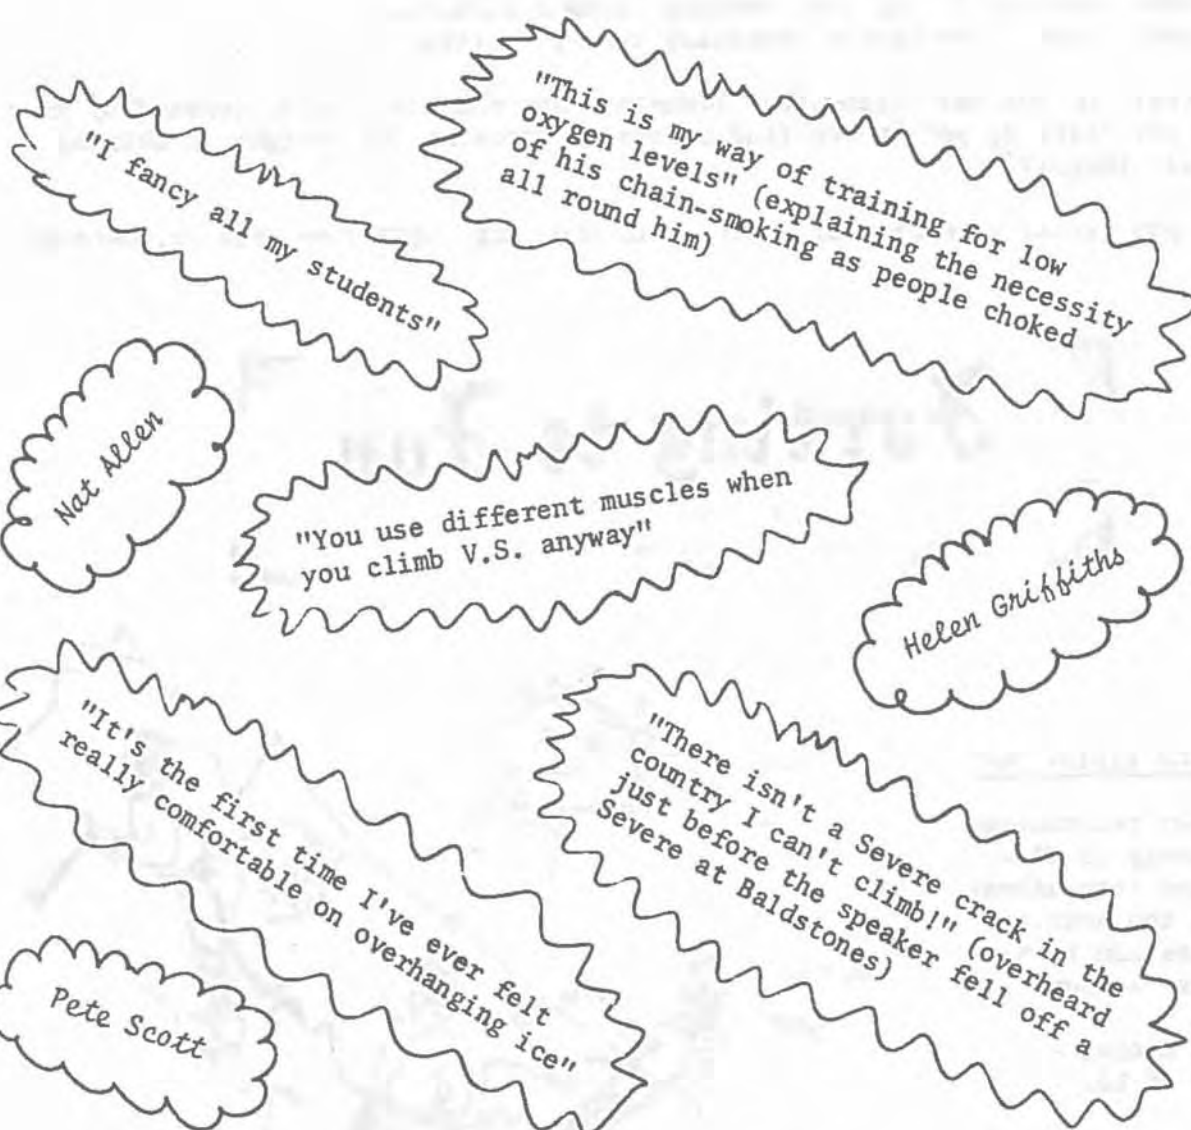 "I fancy all my students"
"This is my way of training for low
oxygen levels" (explaining the necessity
of his chain-smoking as people choked
all round him)
Nat Allen
"You use different muscles when
you climb V.S. anyway"
Helen Griffiths
"It's the first time I've ever felt
really comfortable on overhanging ice"
"There isn't a Severe crack in the
country I can't climb!" (overheard
just before the speaker fell off a
Severe at Baldstones)
Pete Scott